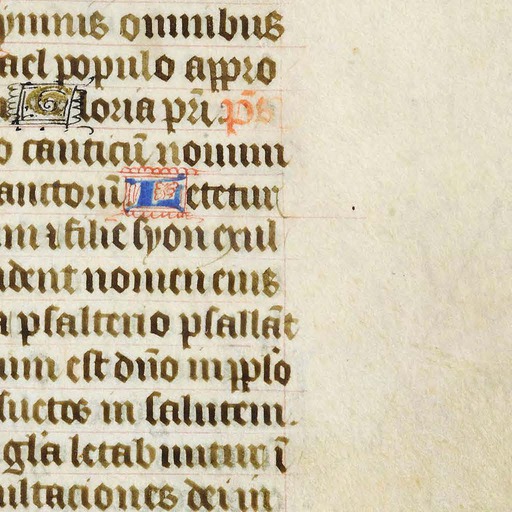 ymnis omnibus
ael populo appro
Gloria pr̃i. p̃s
o canticũ nouum
anctorũ Letetur
m ⁊ filie syon exul
udent nomen eius
a psalterio psallãt
um est dño in pplo
suetos in salutem.
gl'a letabuntur ĩ
ultaciones dei in